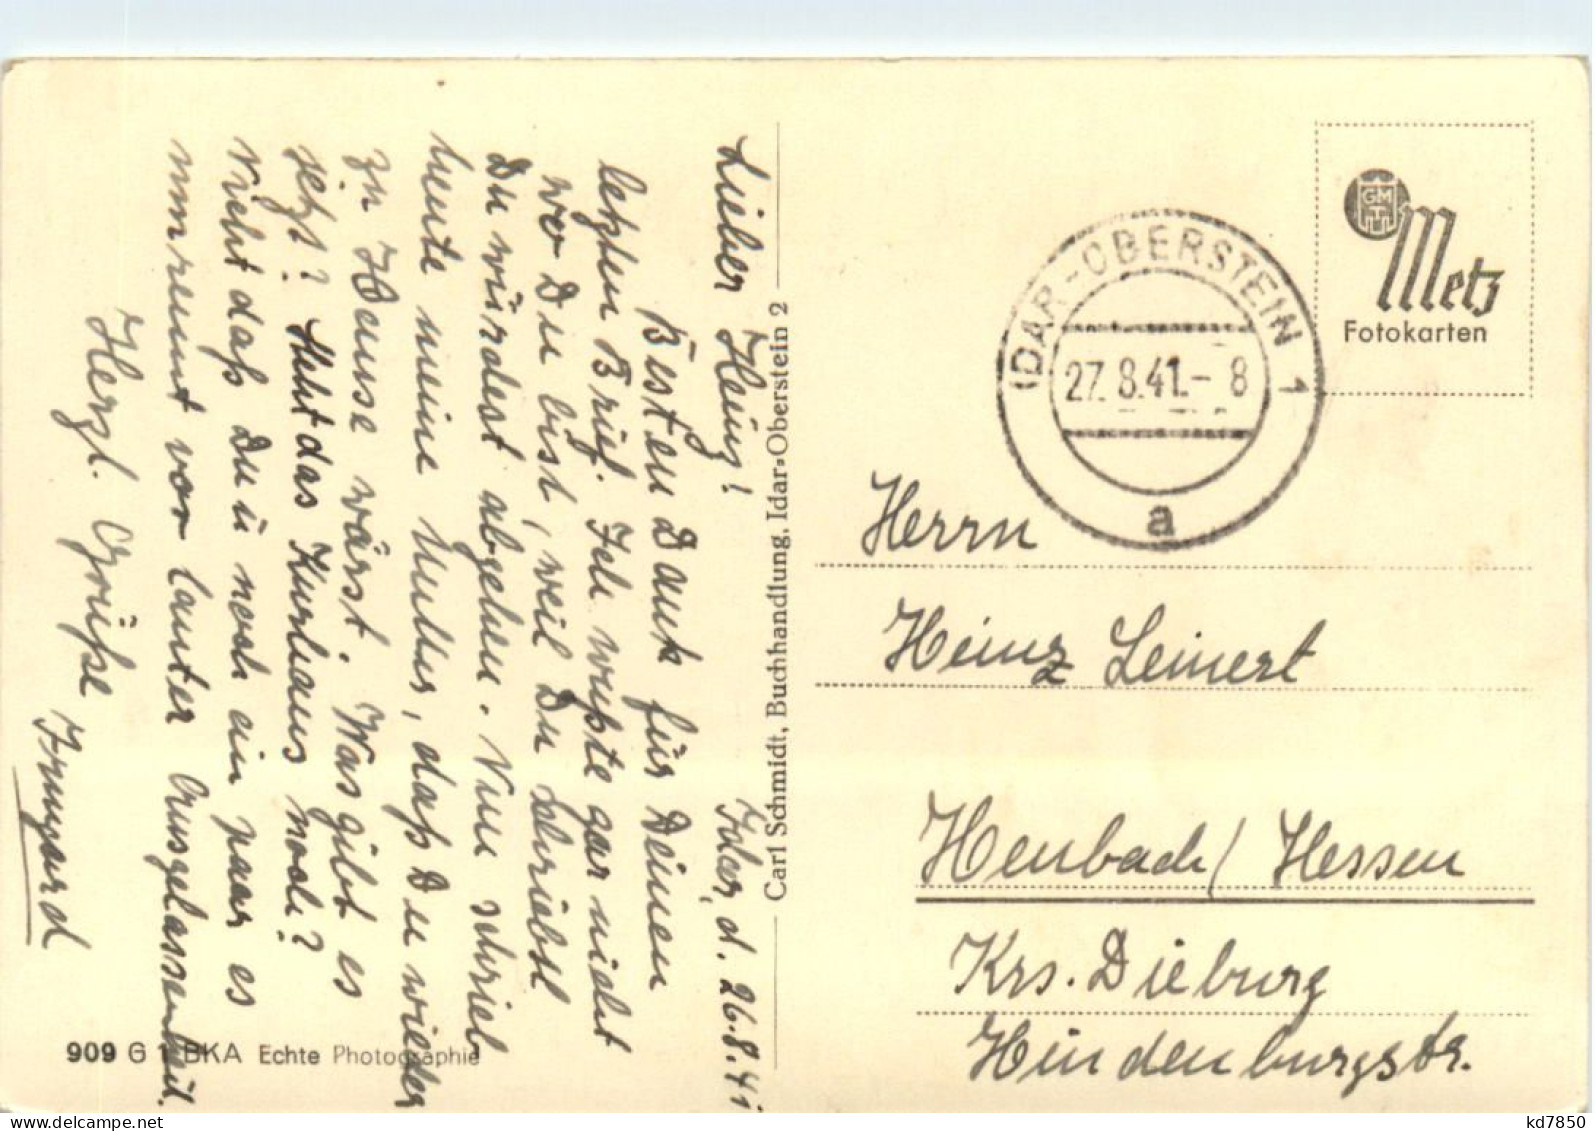 Idar, d. 26.8.41
Lieber Heinz!
Besten Dank für Deinen
letzten Brief. Ich wußte gar nicht
wo Du bist, weil Du schriebst
Du würdest abgehen. Nun schrieb
heute meine Mutter, daß Du wieder
zu Hause wärst. Was gibt es
jetzt? Steht das Kurhaus noch?
Nicht daß Du u noch ein paar es
umrennt vor lauter Ausgelassenheit.
Herzl. Grüße
Irmgard
909 G 1 BKA Echte Photographie
Carl Schmidt, Buchhandlung, Idar-Oberstein 2
GMT
Metz
Fotokarten
IDAR-OBERSTEIN 1
27.8.41.- 8
a
Herrn
Heinz Leinert
Heubach / Hessen
Krs. Dieburg
Hindenburgstr.
kd7850